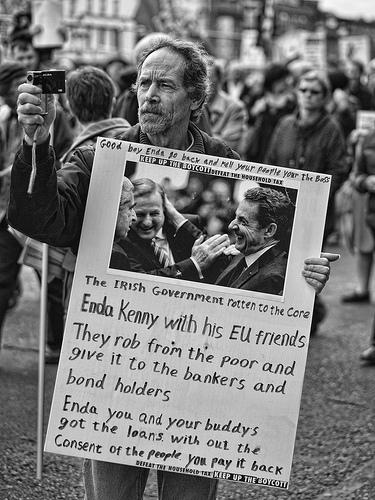 Good boy Enda go back and tell your people your the Boss
KEEP UP THE BOYCOTT! DEFEAT THE HOUSEHOLD TAX
The IRISH GOVERNMENT rotten to the Core
Enda Kenny with his EU friends
They rob from the poor and
give it to the bankers and
bond holders
Enda you and your buddys
got the loans with out the
Consent of the people you pay it back
DEFEAT THE HOUSEHOLD TAX KEEP UP THE BOYCOTT!